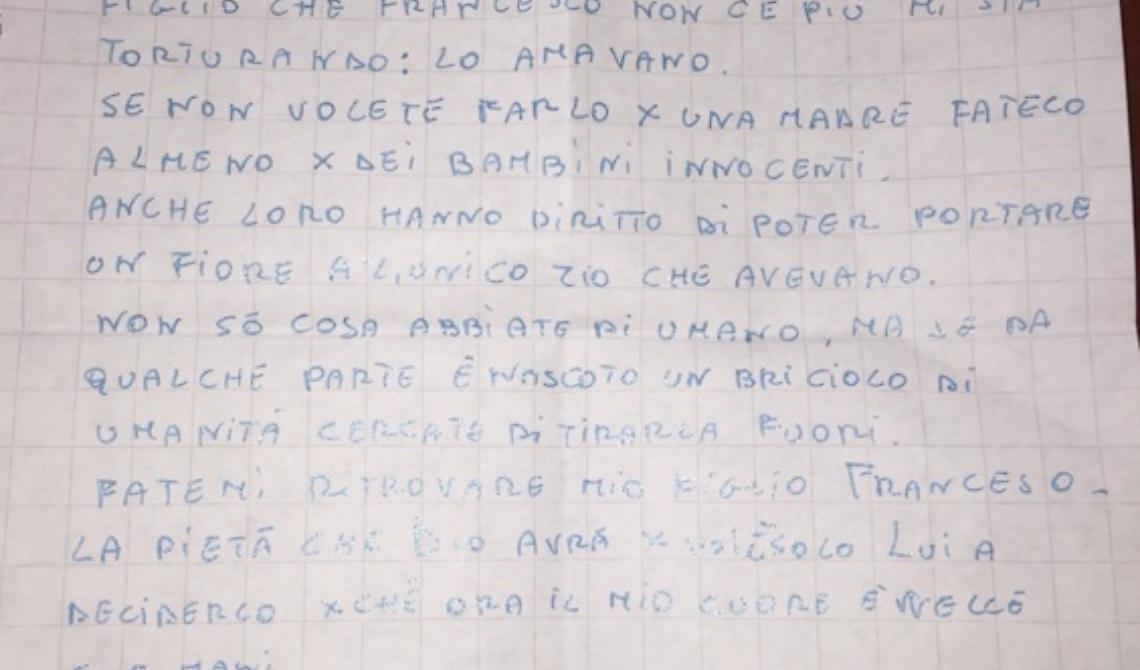 FIGLIO CHE FRANCESCO NON CE PIÙ MI STA
TORTURANDO: LO AMAVANO.
SE NON VOLETE FARLO X UNA MADRE FATELO
ALMENO X DEI BAMBINI INNOCENTI.
ANCHE LORO HANNO DIRITTO DI POTER PORTARE
UN FIORE A L,UNICO ZIO CHE AVEVANO.
NON SÓ COSA ABBIATE DI UMANO, MA SE DA
QUALCHE PARTE É NASCOTO UN BRICIOLO DI
UMANITÁ CERCATE DI TIRARLA FUORI.
FATEMI RITROVARE MIO FIGLIO FRANCESO-
LA PIETÁ CHE DIO AVRÁ X VOI É SOLO LUI A
DECIDERLO XCHÉ ORA IL MIO CUORE É NELLE
MANI